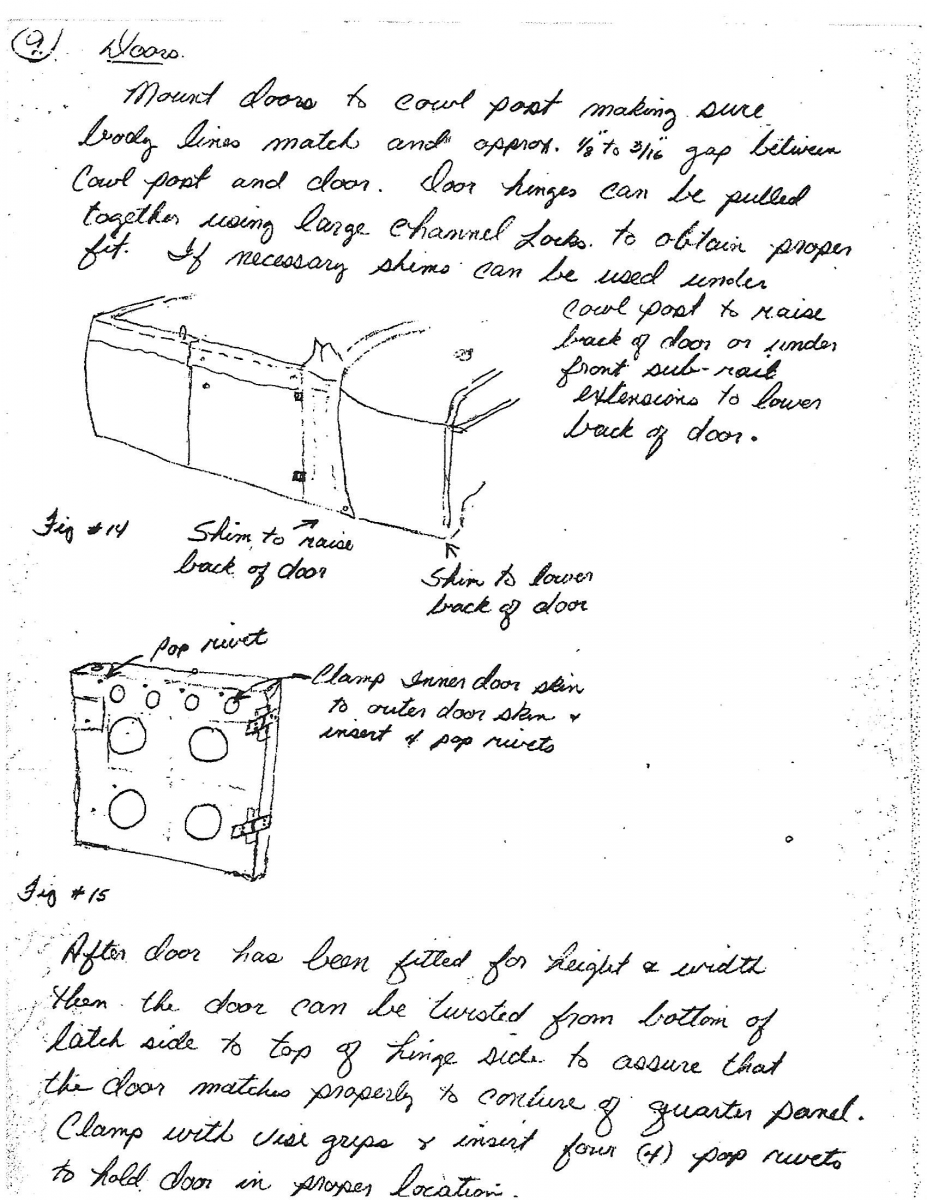 9. Doors.
Mount doors to cowl post making sure
body lines match and approx. 1/8" to 3/16" gap between
Cowl post and door. Door hinges can be pulled
together using large Channel Locks. to obtain proper
fit. If necessary shims can be used under
cowl post to raise
back of door or under
front sub-rail
extensions to lower
back of door.
Fig #14
Shim to raise
back of door
Shim to lower
back of door
Pop rivet
Clamp inner door skin
to outer door skin &
insert 4 pop rivets
Fig #15
After door has been fitted for height & width
then the door can be twisted from bottom of
latch side to top of hinge side to assure that
the door matches properly to conture of quarter panel.
Clamp with vise grips & insert four (4) pop rivets
to hold door in proper location.